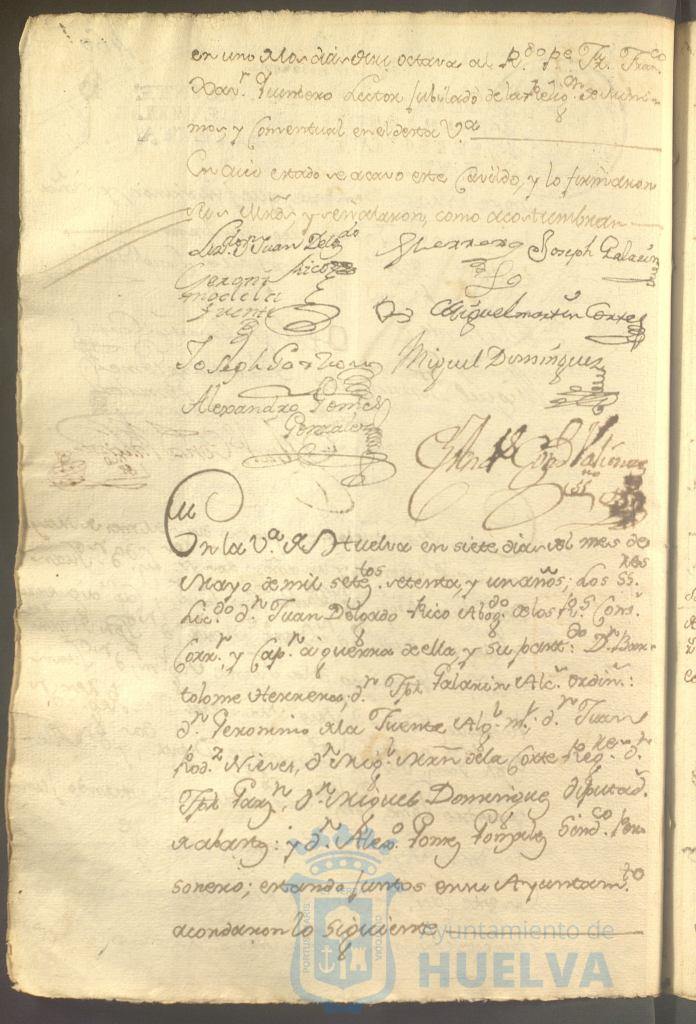 en uno de los dias de su octava al R.do P.e Fr. Fran.co
Xav.r Quintero Lector Jubilado de la Relig.on de Mini-
mos, y Comventual en el de esta V.a
En cuio estado se acavo este Cavildo, y lo firmaron
sus mrds y señalaron, como acostumbran
Lizd.do Dn Juan Delg.do
Rico
Herrero
Joseph Galarin
Geroni
mo de la
fuente
Miguel martin Corte
Joseph Garzon
Miguel Dominguez
Alexandro Gomez
Gonzalez
En la V.a de Huelva en siete dias del mes de
Mayo de mil sete.tos setenta, y un años; Los SS.res
Lic.do d.n Juan Delgado Rico Abog.do de los R.s Cons.s
Corr.r y Cap.n à guerra de ella, y su part.do D.n Bar-
tolome Herrero, d.n Jph Galarin Alc.s ordin.s:
d.n Geronimo de la Fuente Alg.l m.r, d.n Juan
Rod.z Nieves, d.n Mig.l Mrñ de la Corte Reg.res d.n
Jph Garz.n, d.n Miguel Dominguez diputad.s
de abast.s: y d.n Alex.o Gomez Gonzalez Sind.co Per-
sonero; estando juntos en su Ayuntam.to
acordaron lo siguiente
Ayuntamiento de
HUELVA